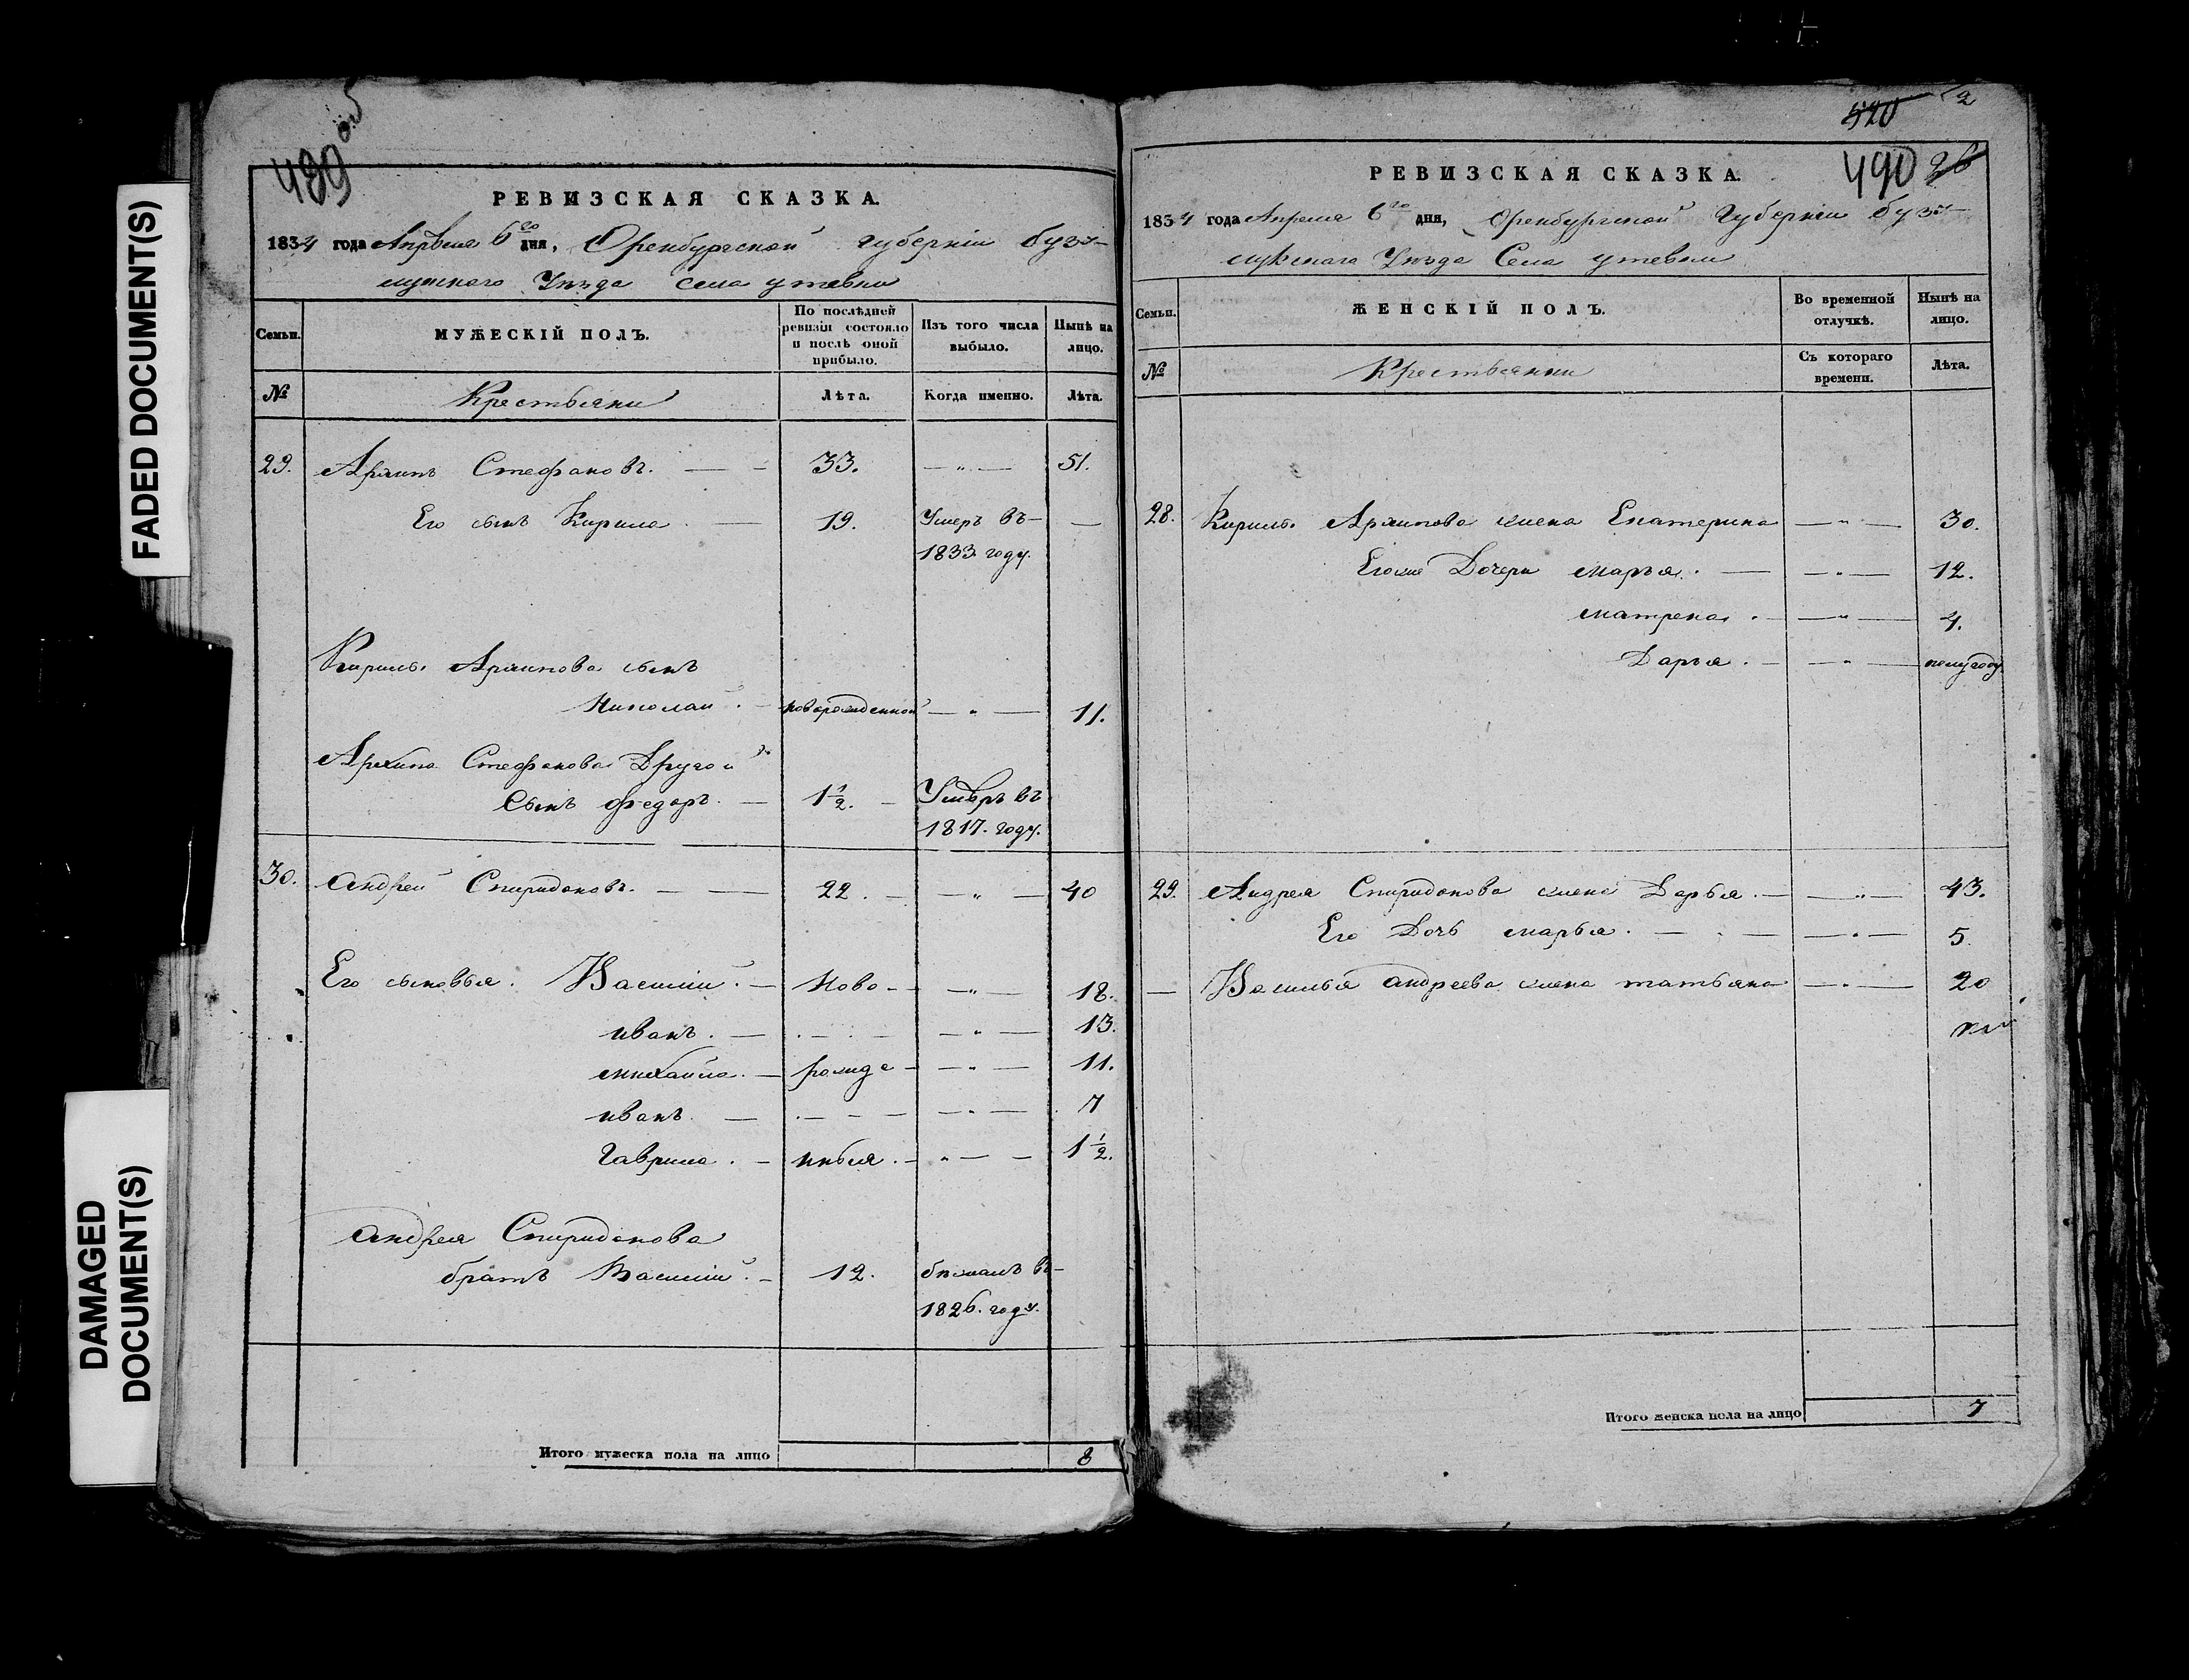 FADED DOCUMENT(S)
DAMAGED
DOCUMENT(S)
489 об
РЕВИЗСКАЯ СКАЗКА.
1834 года Апреля 6го дня, Оренбургской губернiи бузу-
лукскаго Уезда села утевки
Семьи.
МУЖЕСКIЙ ПОЛЪ.
По послѣдней ревизiи состояло и послѣ оной прибыло.
Изъ того числа выбыло.
Нынѣ на лицо.
№
Крестьяни
Лѣта.
Когда именно.
Лѣта.
29. Архипъ Стефановъ. — 33. — " — 51.
Его сынъ Кирила. — 19. Умеръ въ —
1833. году.
Кирилы Архипова сынъ
Николай. — новорожденной — " — 11.
Архипа Стефанова Другой
Сынъ федоръ. — 1 1/2. — Умеръ въ
1817. году.
30. Андрей Спиридоновъ. — 22. — " — 40
Его сыновья. Василий. — Ново- — " — 18.
иванъ. — — " — 13.
михайла. — рожде- — " — 11.
иванъ. — — " — 7
Гаврила. — нныя. — " — 1 1/2.
Андрея Спиридонова
братъ Василий. — 12. бѣжалъ въ
1826. году.
Итого мужеска пола на лицо 8
520
2
490 26
РЕВИЗСКАЯ СКАЗКА.
1834 года Апреля 6го дня, Оренбургской Губернiи бузу-
лукскаго Уезда Села утевки
Семьи.
ЖЕНСКIЙ ПОЛЪ.
Во временной отлучкѣ.
Нынѣ на лицо.
№
Крестьянки
Съ котораго времени.
Лѣта.
28. Кирилы Архипова жена Екатерина — " — 30.
Егоже Дочери марья. — " — 12.
матрена. — " — 4.
Дарья. — " — полугоду
29. Андрея Спиридонова жена Дарья. — " — 43.
Его Дочь марья. — " — 5.
— Василья андреева жена татьяна — " — 20
Итого женска пола на лицо 7